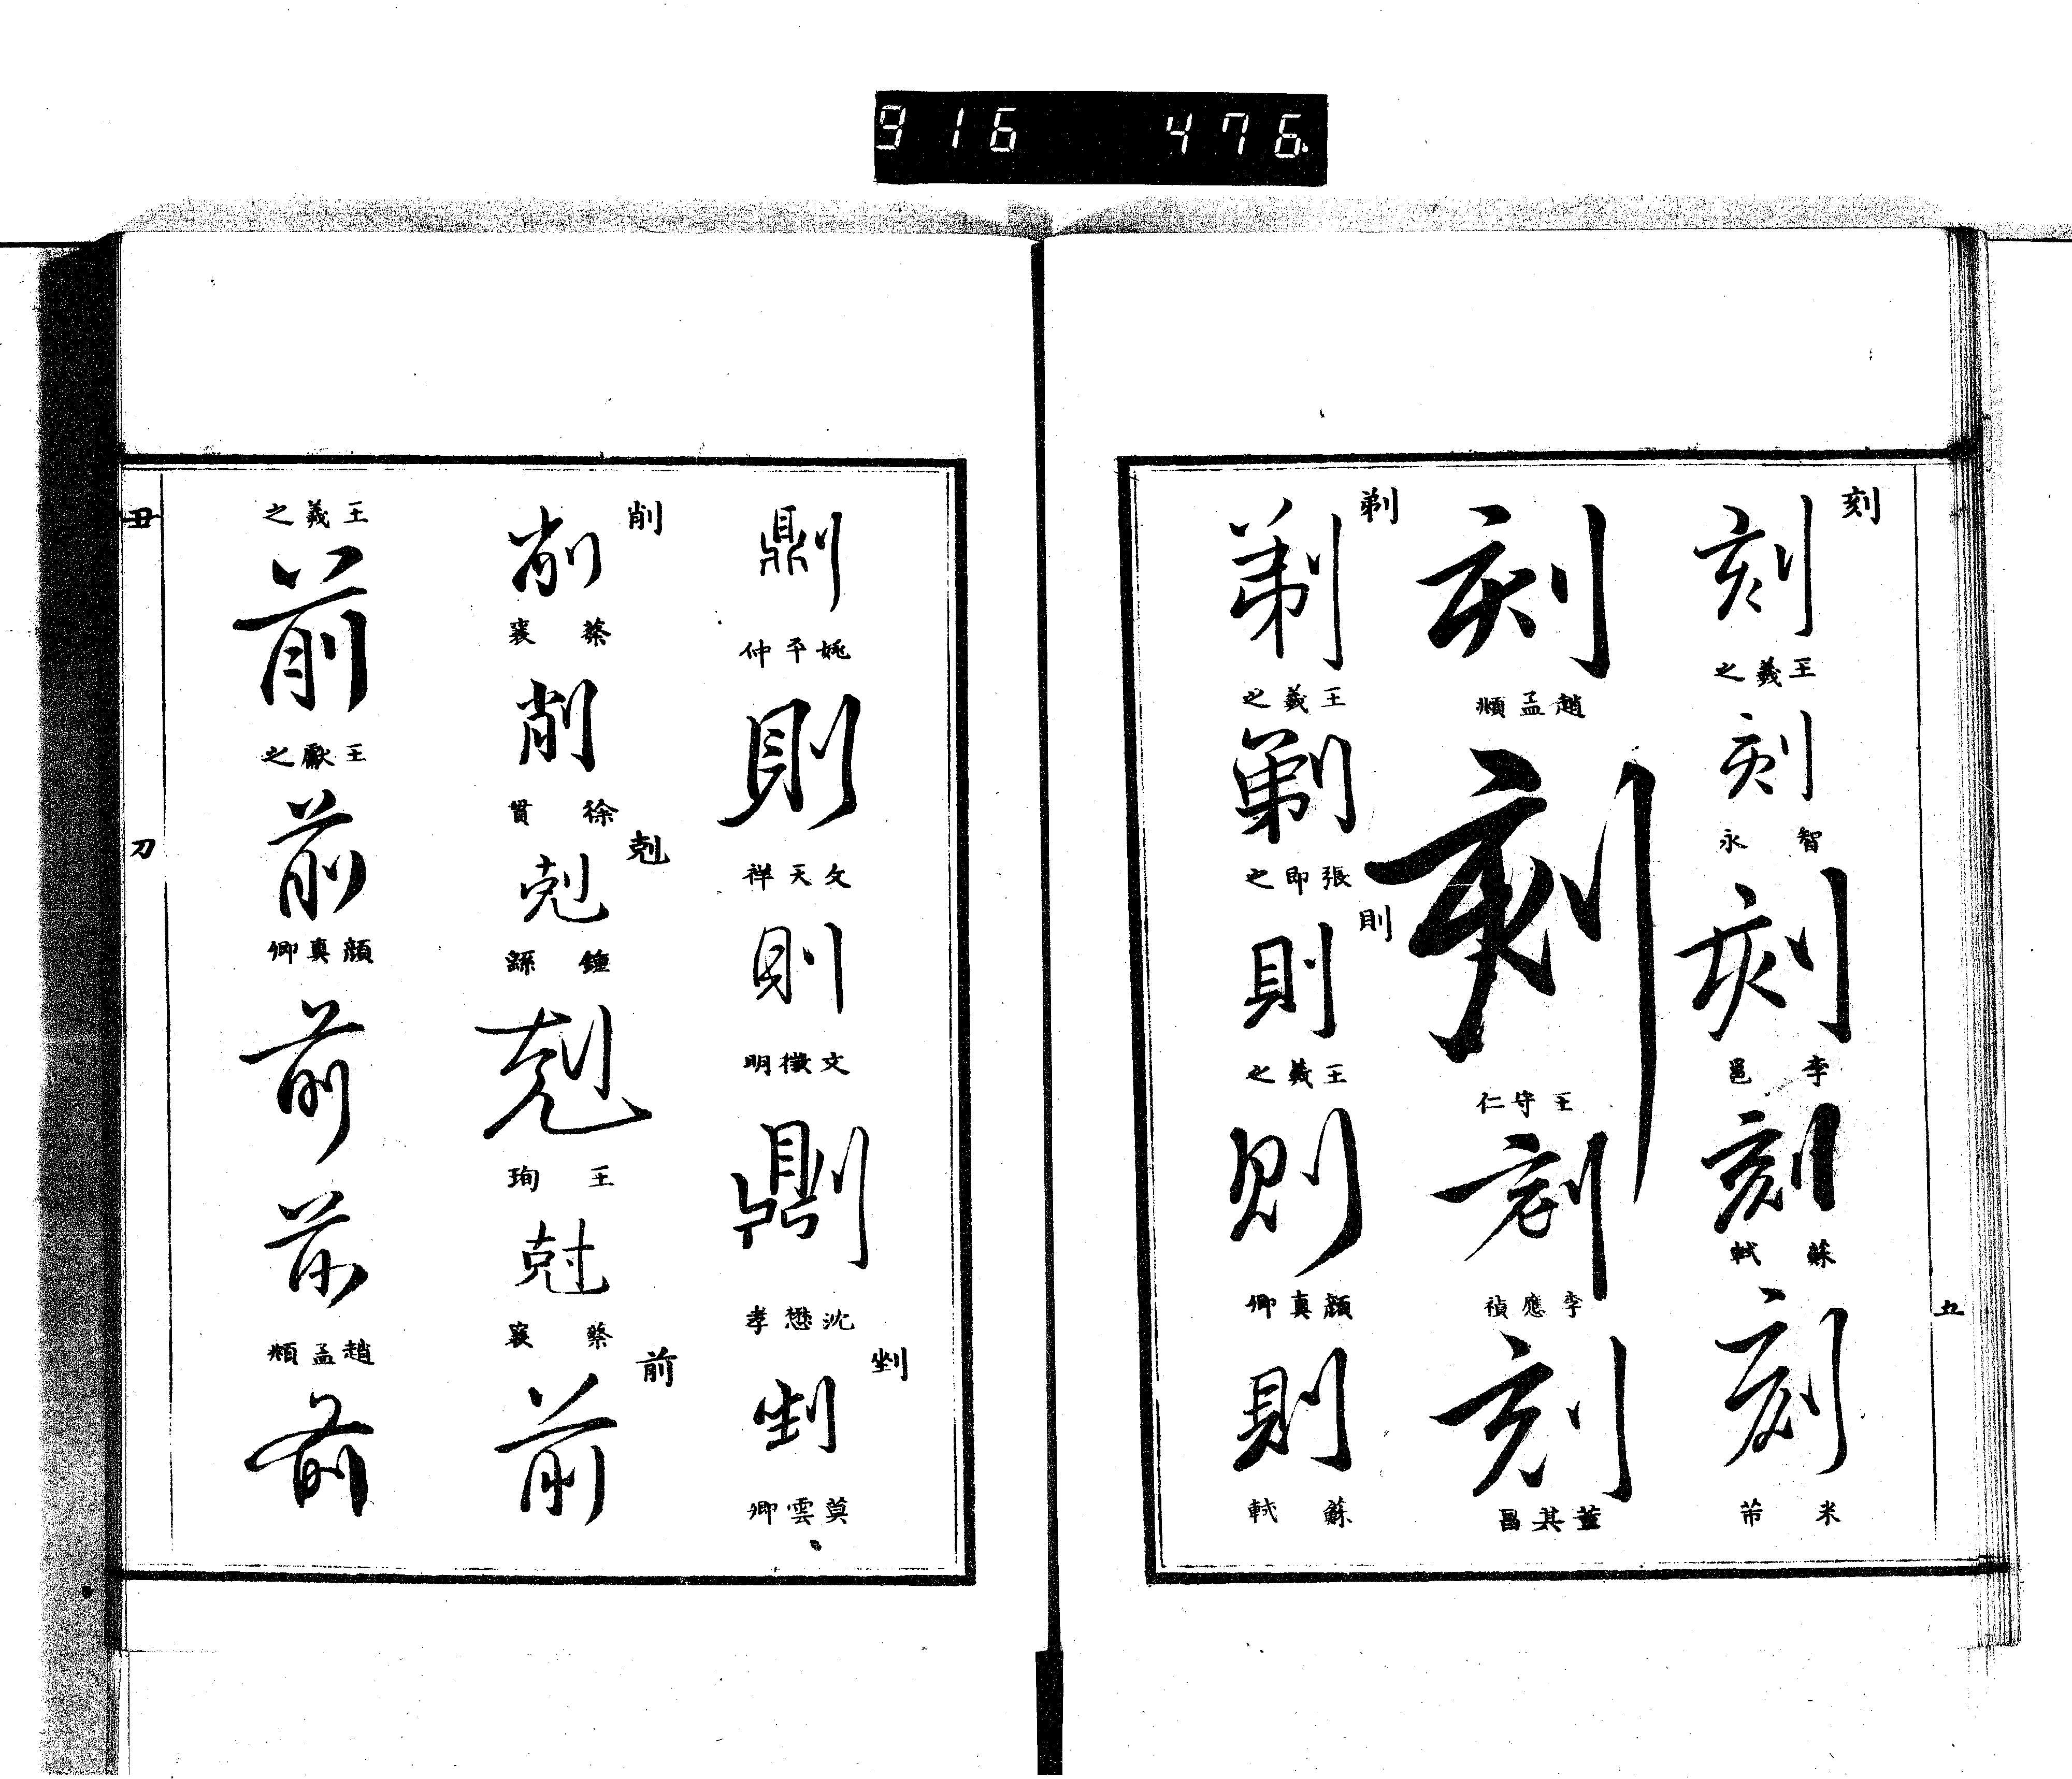 916 476
刻
刻
王羲之
刻
智永
刻
李邕
刻
蘇軾
刻
米芾
刻
趙孟頫
刻
王守仁
刻
李應禎
刻
董其昌
剃
剃
王羲之
剃
張即之
則
則
王羲之
則
顔真卿
則
蘇軾
五
鼎刂
姚平仲
則
文天祥
則
文徵明
鼎刂
沈懋孝
剉
剉
莫雲卿
削
削
蔡襄
削
徐貫
剋
剋
鍾繇
剋
王珣
尅
蔡襄
前
前
王羲之
前
王獻之
前
顔真卿
前
前
趙孟頫
前
丑
刀